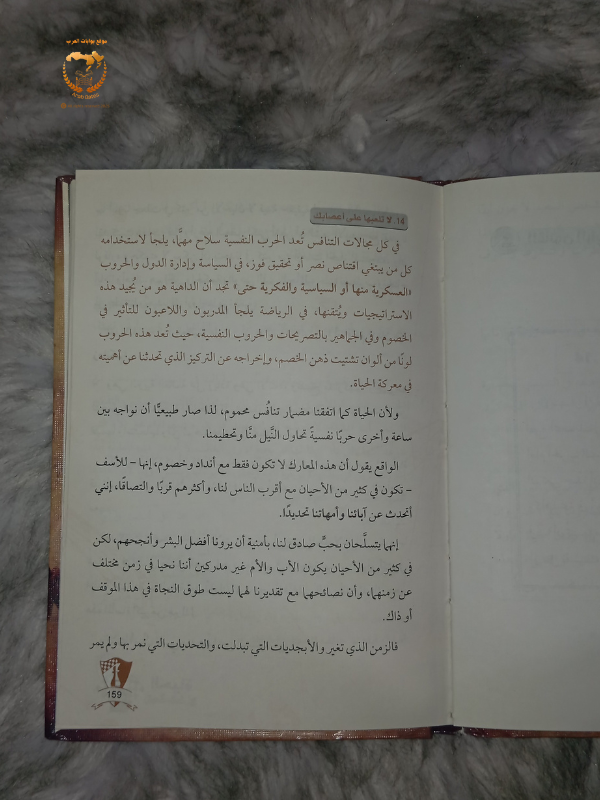 موقع بوابات العرب
Arab Gates
14. لا تلعبها على أعصابك
في كل مجالات التنافس تُعد الحرب النفسية سلاح مهمًّا، يلجأ لاستخدامه
كل من يبتغي اقتناص نصر أو تحقيق فوز، في السياسة وإدارة الدول والحروب
«العسكرية منها أو السياسية والفكرية حتى» تجد أن الداهية هو من يُجيد هذه
الاستراتيجيات ويُتقنها، في الرياضة يلجأ المدربون واللاعبون للتأثير في
الخصوم وفي الجماهير بالتصريحات والحروب النفسية، حيث تُعد هذه الحروب
لونًا من ألوان تشتيت ذهن الخصم، وإخراجه عن التركيز الذي تحدثنا عن أهميته
في معركة الحياة.
ولأن الحياة كما اتفقنا مضمار تنافُس محموم، لذا صار طبيعيًّا أن نواجه بين
ساعة وأخرى حربًا نفسيةً تحاول النَّيل منَّا وتحطيمنا.
الواقع يقول أن هذه المعارك لا تكون فقط مع أنداد وخصوم، إنها – للأسف
– تكون في كثير من الأحيان مع أقرب الناس لنا، وأكثرهم قربًا والتصاقًا، إنني
أتحدث عن آبائنا وأمهاتنا تحديدًا.
إنهما يتسلَّحان بحبٍّ صادق لنا، بأمنية أن يرونا أفضل البشر وأنجحهم، لكن
في كثير من الأحيان يكون الأب والأم غير مدركين أننا نحيا في زمن مختلف
عن زمنهما، وأن نصائحهما مع تقديرنا لهما ليست طوق النجاة في هذا الموقف
أو ذاك.
فالزمن الذي تغير والأبجديات التي تبدلت، والتحديات التي نمر بها ولم يمر
159